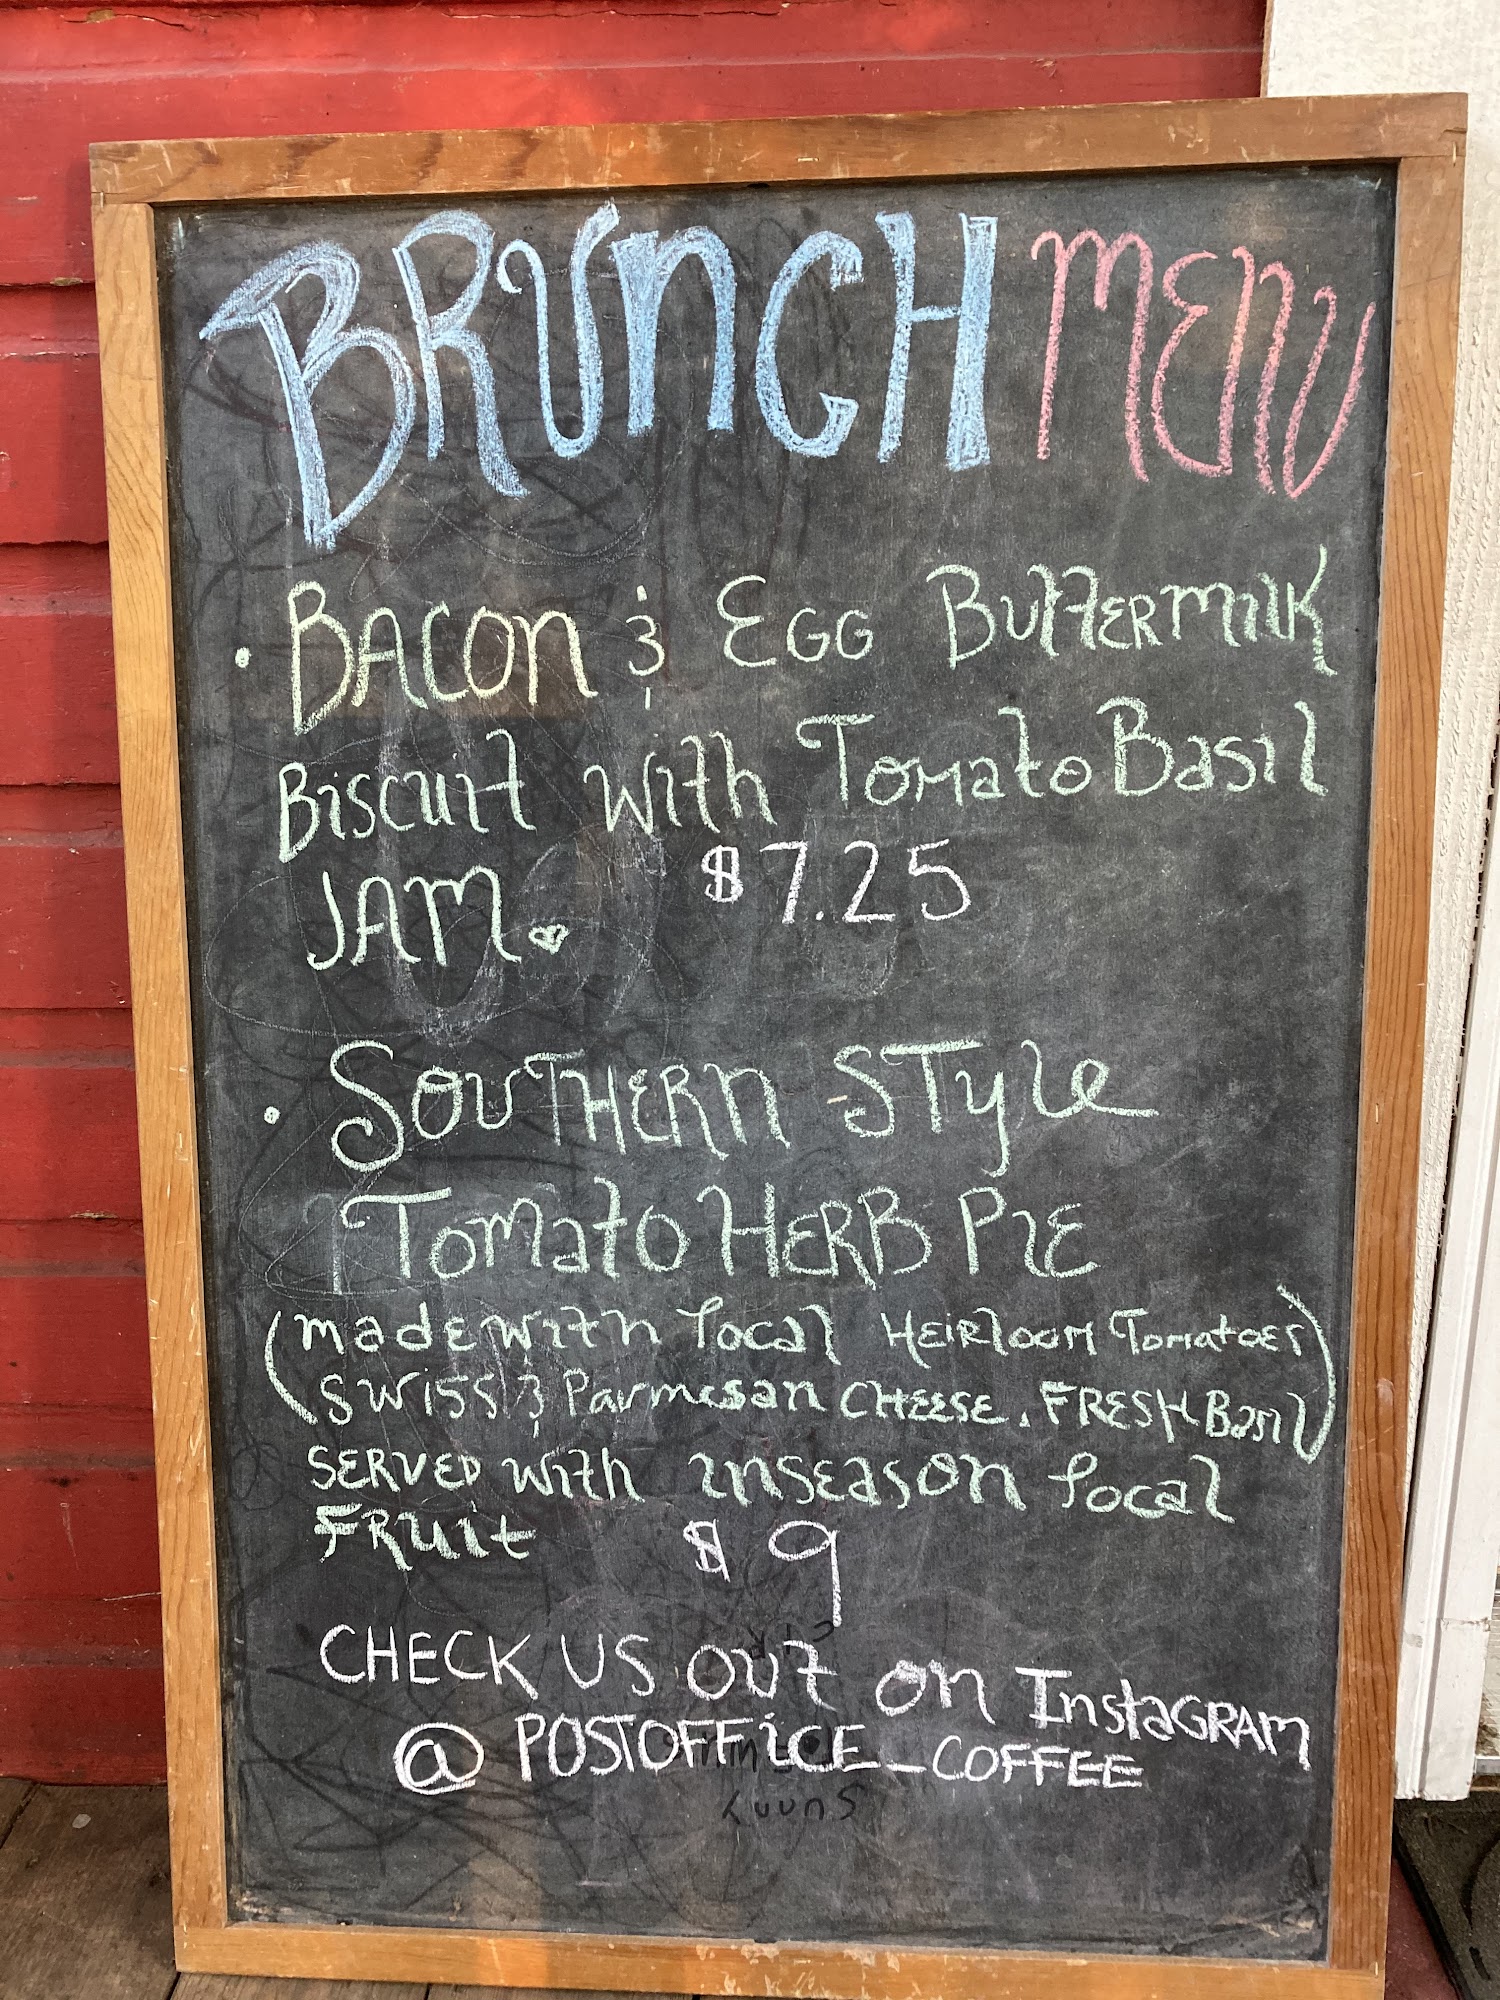 BRUNCH MENU
• BACON & EGG BUTTERMILK
BISCUIT WITH TOMATO BASIL
JAM. $7.25
• SOUTHERN STYLE
TOMATO HERB PIE
(made with local HEIRLOOM TOMATOES
SWISS & Parmesan CHEESE. FRESH Basil)
SERVED with INSEASON local
FRUIT $9
CHECK US OUT ON INSTAGRAM
@POSTOFFICE_COFFEE